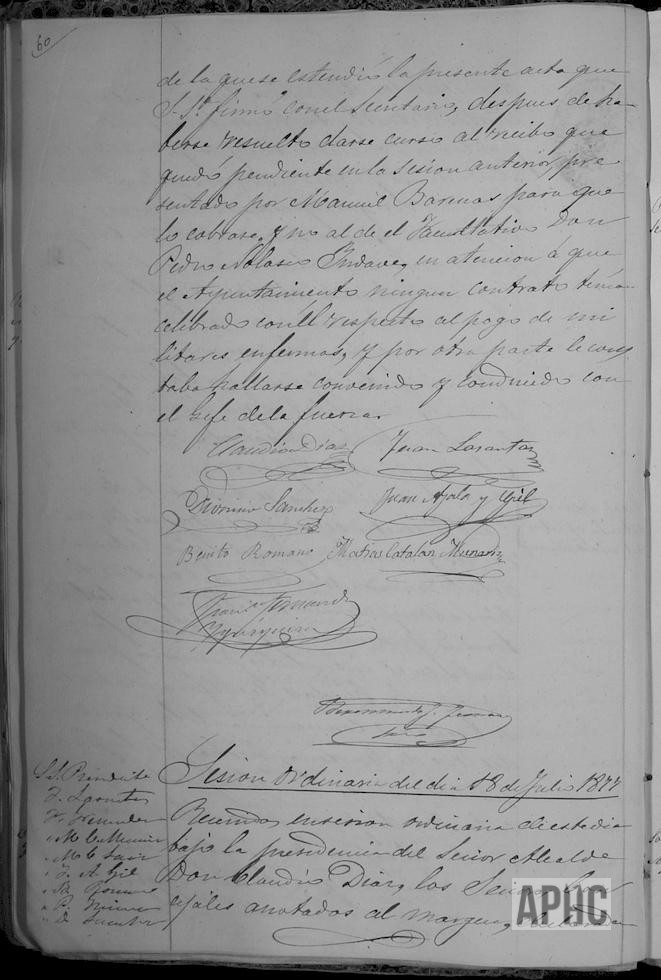 60
de la que se estendió la presente acta que
S. Sª. firmó con el Secretario, despues de ha-
berse resuelto darse curso al recibo que
quedó pendiente en la sesion anterior, pre
sentado por Manuel Barenas para que
lo cobrase, y no al de el Facultativo Don
Pedro Nolasco Yndave, en atencion á que
el Ayuntamiento ningun contrato tenia
celebrado con él respecto al pago de mi
litares enfermos, y por otra parte le cons
taba hallarse convenido y conducido con
el Gefe de la fuerza
Claudio Diaz Juan Lasanta
Dionisio Sanchez Juan Ayala y Gil
Benito Romano Matias Catalan Munarriz
Fernandez
Sesion ordinaria del dia 18 de Julio 1877
S.S. Presidente
J. Lasanta
F. Fernandez
M. C. Munarriz
J. A. Gil
B. Romano
D. Sanchez
Reunidos en sesion ordinaria de este dia
bajo la presidencia del Señor Alcalde
Don Claudio Diaz, los Señores Con
cejales anotados al margen,
APHC